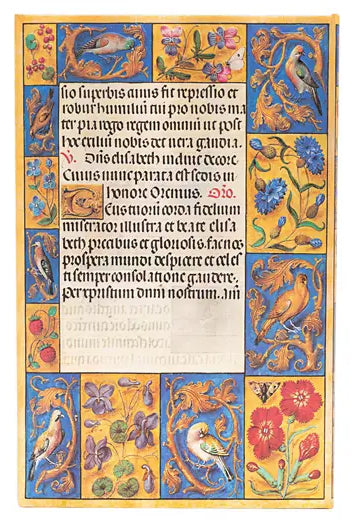 sio superbis animis fit repressio et
robur humilium qui pro nobis ma
ter pia rogo regem omnium ut post
hoc exilium nobis det vera gaudia.
V. Dñs elisabeth induit decore.
Cuius nunc parata est sedis in
honore Oremus. Oro.
Deus tuorum corda fidelium
miserator illustra et beate elisa
beth precibus et gloriosis facnos
prospera mundi despicere et celes
ti semper consolatione gaudere.
Per xpristum dnm nostrum. Am